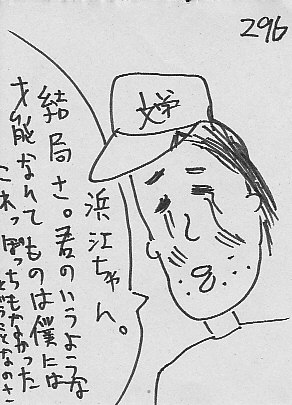 296
浜江ちゃん。
結局さ。君のいうような
才能なんてものは僕には
これっぽっちもなかった
ということなのさ